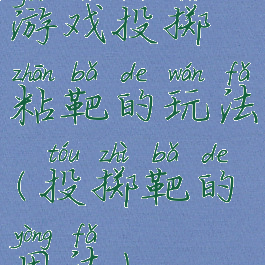 游戏投掷
zhān bǎ de wán fǎ
粘靶的玩法
tóu zhì bǎ de
(投掷靶的
yòng fǎ
用法)